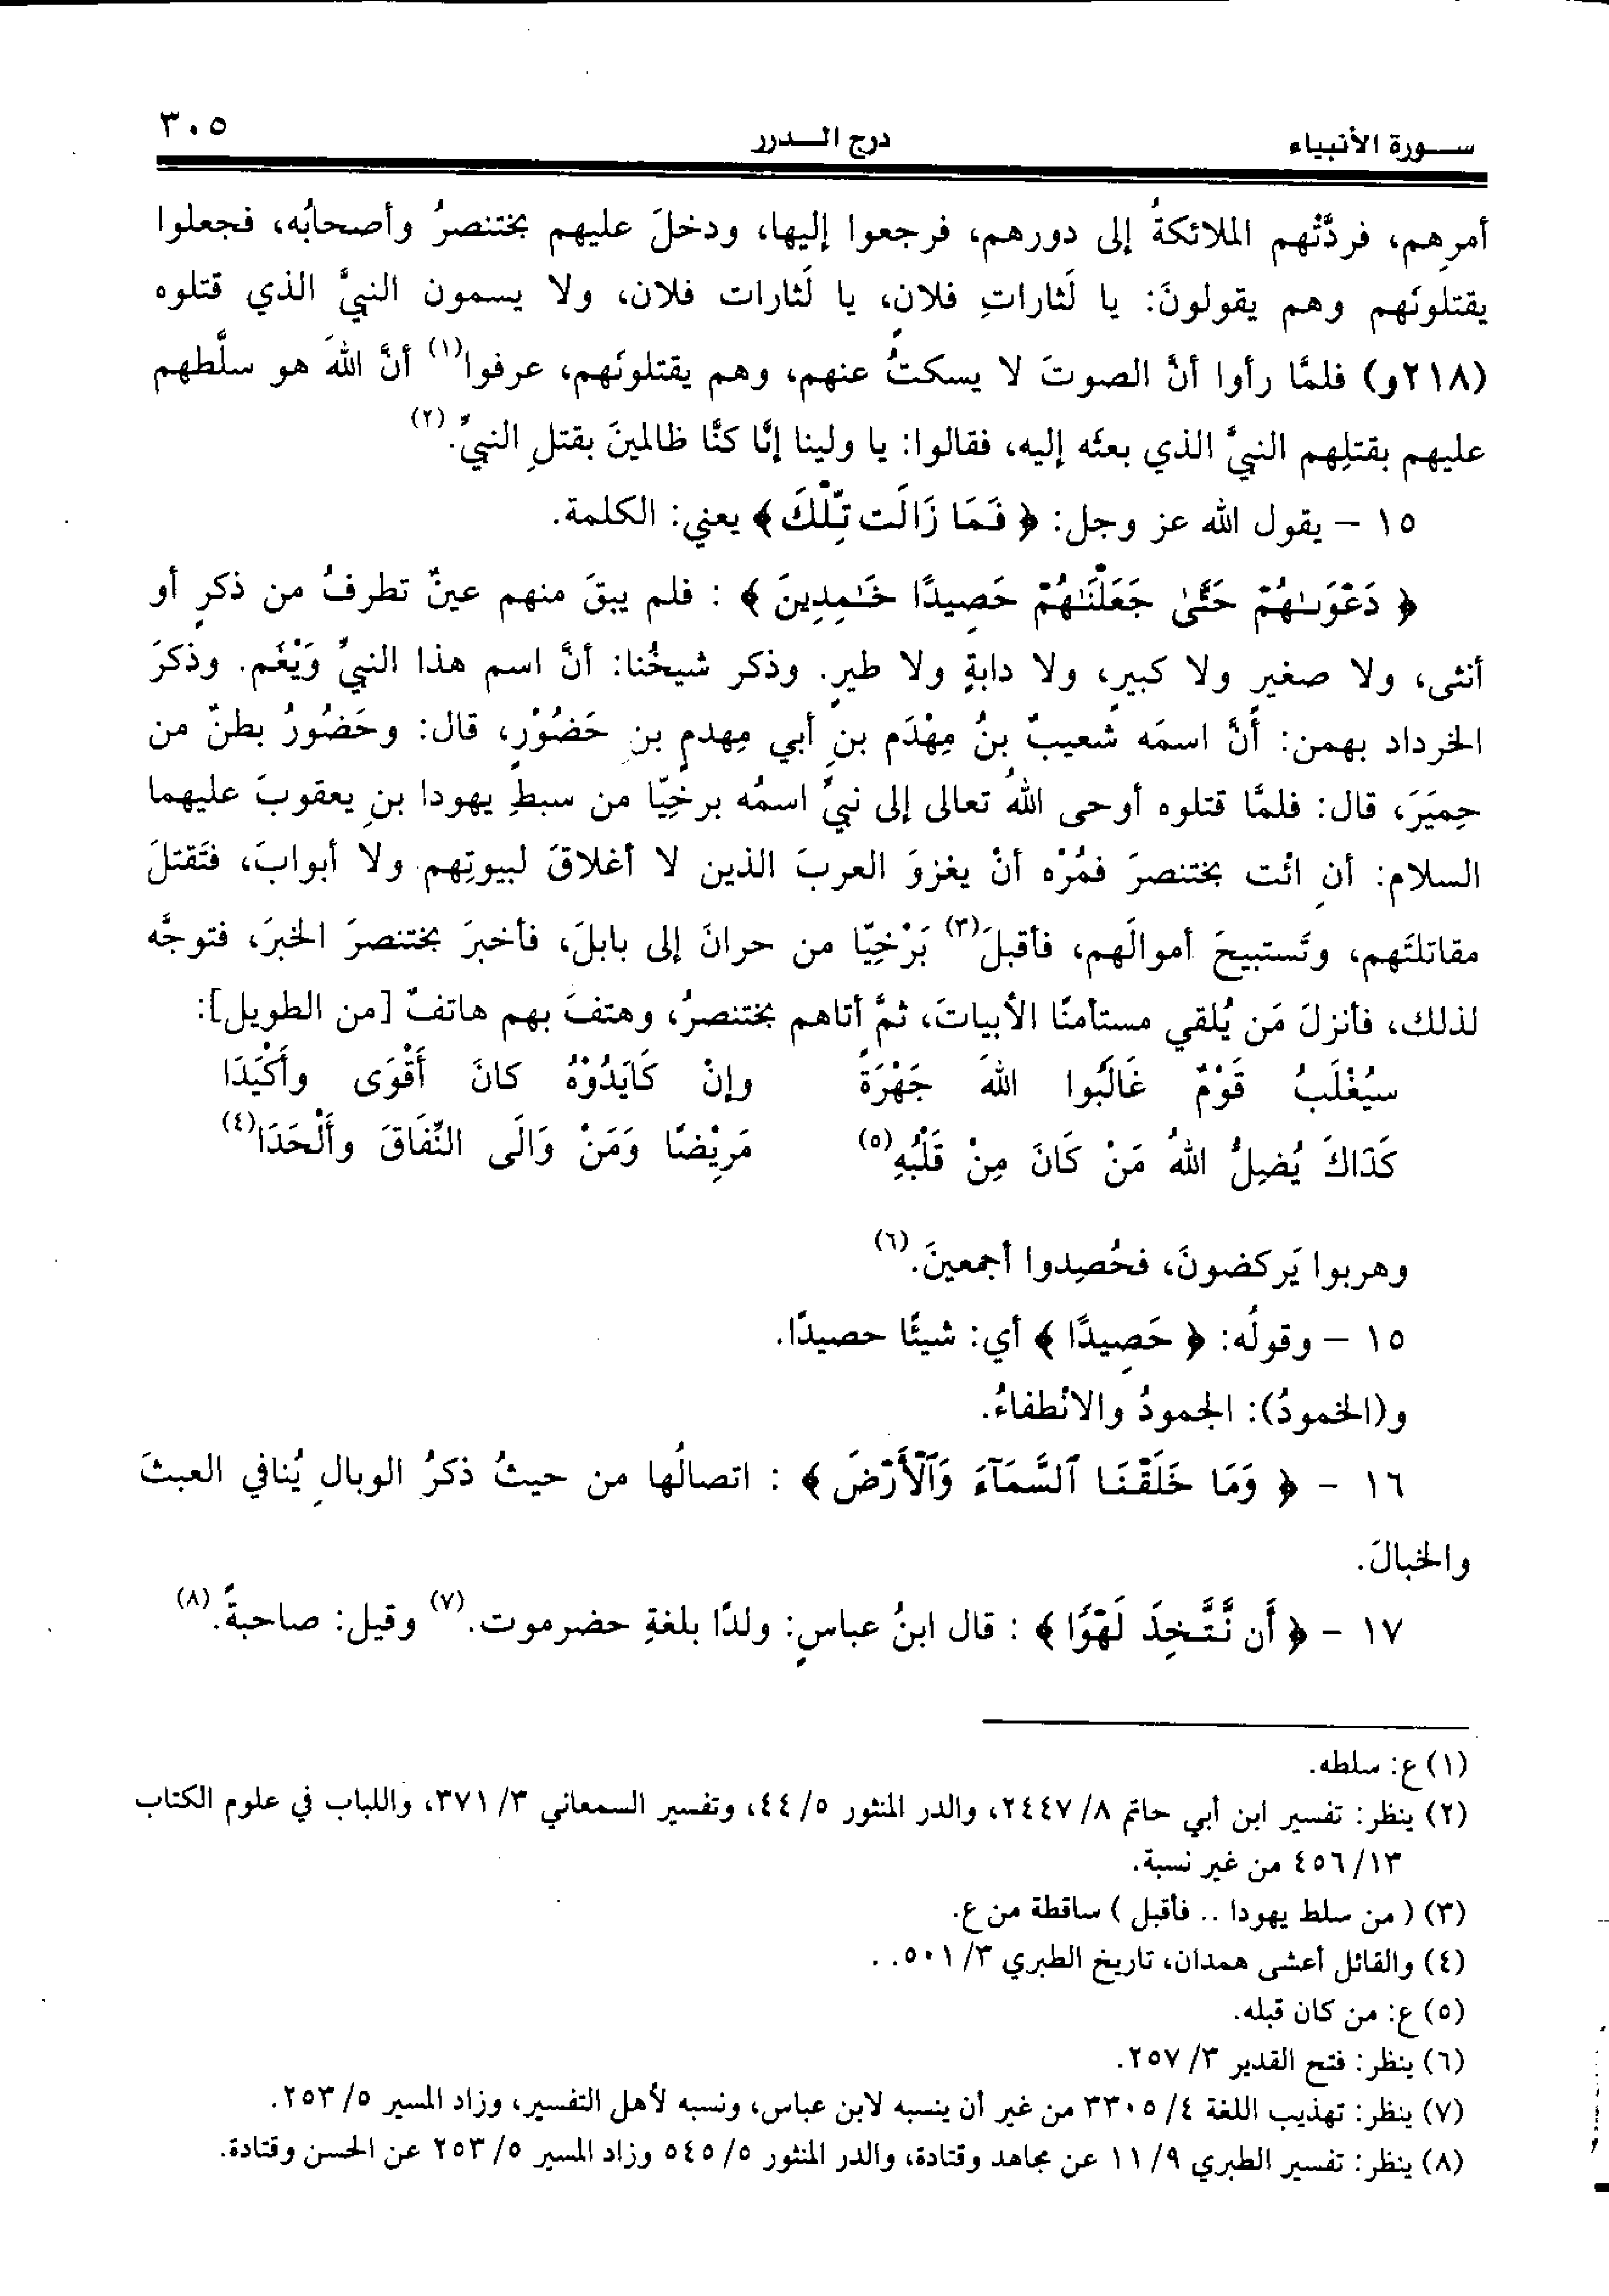 سـورة الأنبياء درج الـدرر ٣٠٥
أمرِهم، فردَّتْهم الملائكةُ إلى دورهم، فرجعوا إليها، ودخلَ عليهم بختنصرُ وأصحابُه، فجعلوا
يقتلونَهم وهم يقولونَ: يا لَثاراتِ فلانٍ، يا لَثارات فلان، ولا يسمون النبيَّ الذي قتلوه
(٢١٨و) فلمَّا رأوا أنَّ الصوتَ لا يسكتُ عنهم، وهم يقتلونَهم، عرفوا(١) أنَّ اللهَ هو سلَّطهم
عليهم بقتلِهم النبيَّ الذي بعثَه إليه، فقالوا: يا ولينا إنَّا كنَّا ظالمينَ بقتلِ النبيِّ.(٢)
١٥ – يقول الله عز وجل: ﴿ فَمَا زَالَت تِّلْكَ ﴾ يعني: الكلمة.
﴿ دَعْوَىٰهُمْ حَتَّىٰ جَعَلْنَٰهُمْ حَصِيدًا خَٰمِدِينَ ﴾ : فلم يبقَ منهم عينٌ تطرفُ من ذكرٍ أو
أنثى، ولا صغيرٍ ولا كبيرٍ، ولا دابةٍ ولا طيرٍ. وذكر شيخُنا: أنَّ اسم هذا النبيِّ وَيْغَم. وذكرَ
الخرداد بهمن: أنَّ اسمَه شعيبُ بنُ مِهْدَم بنِ أبي مِهدمِ بنِ حَضُوْرٍ، قال: وحَضُورُ بطنٌ من
حِميَرَ، قال: فلمَّا قتلوه أوحى اللهُ تعالى إلى نبيٍّ اسمُه برخِيّا من سبطِ يهودا بنِ يعقوبَ عليهما
السلام: أنِ ائت بختنصرَ فمُرْه أنْ يغزوَ العربَ الذين لا أغلاقَ لبيوتِهم ولا أبوابَ، فتَقتلَ
مقاتلتَهم، وتَستبيحَ أموالَهم، فأقبلَ(٣) بَرْخِيّا من حرانَ إلى بابلَ، فأخبرَ بختنصرَ الخبرَ، فتوجَّه
لذلك، فأنزلَ مَن يُلقي مستأمنًا الأبياتَ، ثمَّ أتاهم بختنصرُ، وهتفَ بهم هاتفٌ [من الطويل]:
سيُغْلَبُ قَوْمٌ غَالَبُوا اللهَ جَهْرَةً وإنْ كَايَدُوْهُ كانَ أَقْوَى وأَكْيَدَا
كَذَاكَ يُضِلُّ اللهُ مَنْ كَانَ مِنْ قَلْبُهِ(٥) مَرِيْضًا وَمَنْ وَالَى النِّفَاقَ وأَلْحَدَا(٤)
وهربوا يَركضونَ، فحُصِدوا أجمعينَ.(٦)
١٥ – وقولُه: ﴿ حَصِيدًا ﴾ أي: شيئًا حصيدًا.
و(الخمودُ): الجمودُ والانْطفاءُ.
١٦ – ﴿ وَمَا خَلَقْنَا ٱلسَّمَآءَ وَٱلْأَرْضَ ﴾ : اتصالُها من حيثُ ذكرُ الوبالِ يُنافي العبثَ
والخبالَ.
١٧ – ﴿ أَن نَّتَّخِذَ لَهْوًا ﴾ : قال ابنُ عباسٍ: ولدًا بلغةِ حضرموت.(٧) وقيل: صاحبةً.(٨)
(١) ع: سلطه.
(٢) ينظر: تفسير ابن أبي حاتم ٨/ ٢٤٤٧، والدر المنثور ٥/ ٤٤، وتفسير السمعاني ٣/ ٣٧١، واللباب في علوم الكتاب
١٣/ ٤٥٦ من غير نسبة.
(٣) ( من سلط يهودا .. فأقبل ) ساقطة من ع.
(٤) والقائل أعشى همدان، تاريخ الطبري ٣/ ٥٠١. .
(٥) ع: من كان قبله.
(٦) ينظر: فتح القدير ٣/ ٢٥٧.
(٧) ينظر: تهذيب اللغة ٤/ ٣٣٠٥ من غير أن ينسبه لابن عباس، ونسبه لأهل التفسير، وزاد المسير ٥/ ٢٥٣.
(٨) ينظر: تفسير الطبري ٩/ ١١ عن مجاهد وقتادة، والدر المنثور ٥/ ٥٤٥ وزاد المسير ٥/ ٢٥٣ عن الحسن وقتادة.